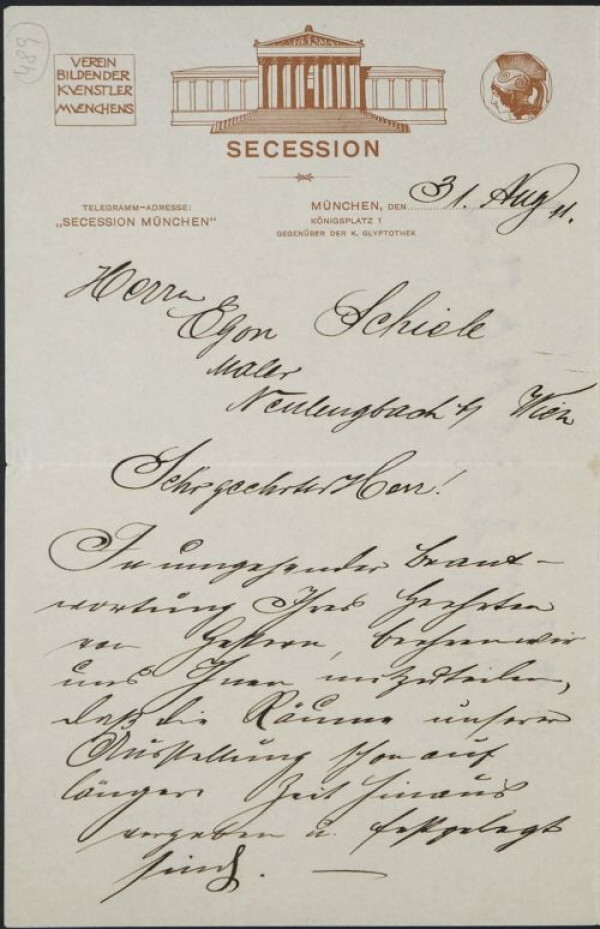 489
VEREIN
BILDENDER
KVENSTLER
MVENCHENS
SECESSION
TELEGRAMM-ADRESSE:
„SECESSION MÜNCHEN“
MÜNCHEN, DEN 31. Aug 11.
KÖNIGSPLATZ 1
GEGENÜBER DER K. GLYPTOTHEK
Herrn
Egon Schiele
Maler
Neulengbach b/ Wien
Sehr geehrter Herr!
In umgehender Beant-
wortung Ihres Geehrten
von Gestern, beehren wir
uns Ihnen mitzuteilen,
daß die Räume unserer
Ausstellung schon auf
längere Zeit hinaus
vergeben u. festgelegt
sind. —